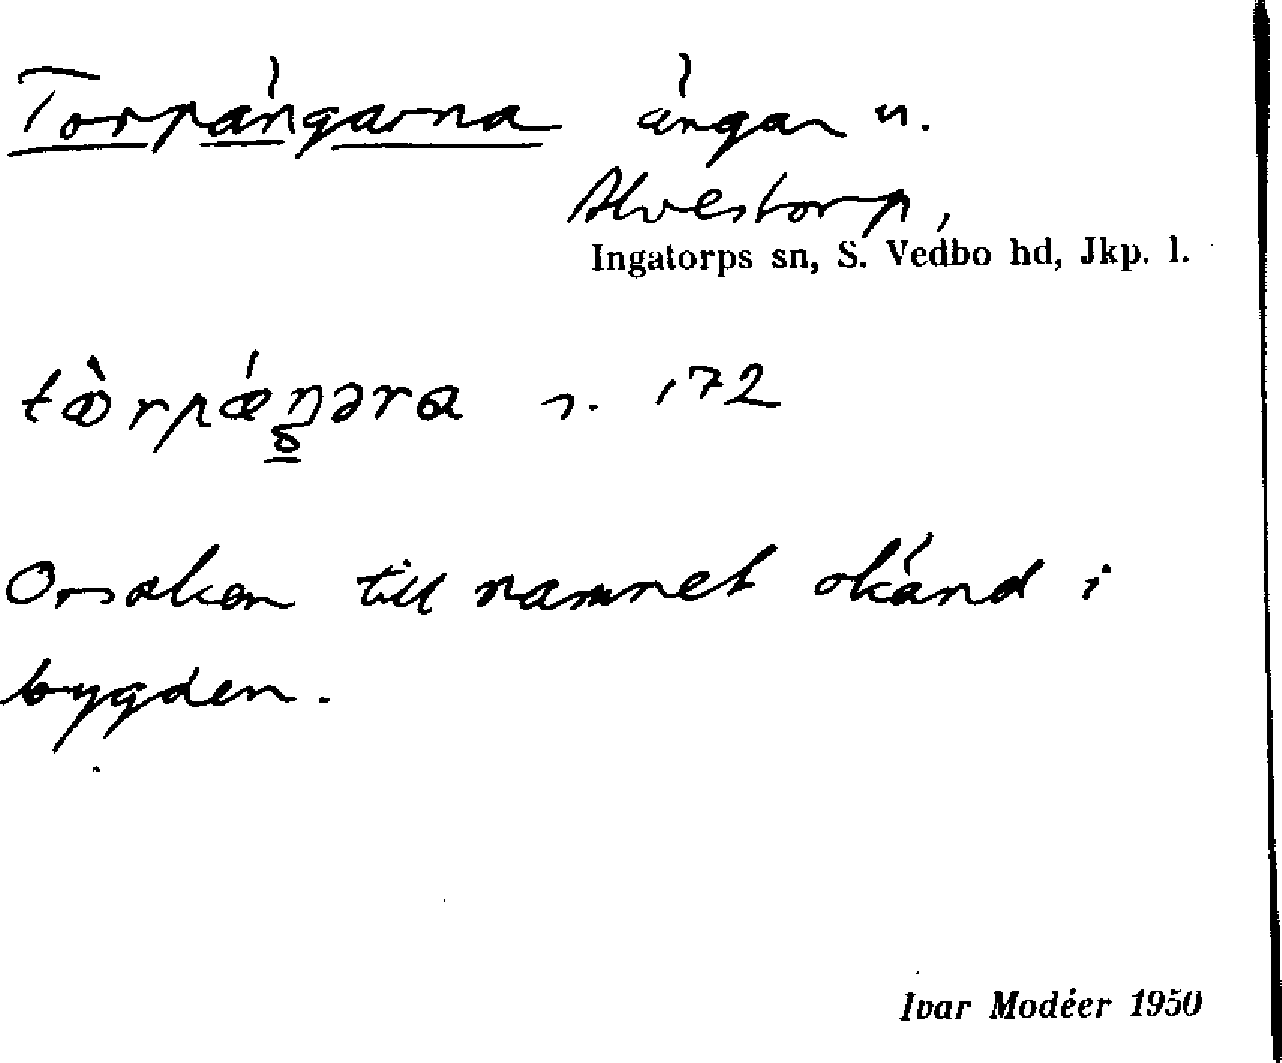 Torpängarna ängar u.
Alvestorp,
Ingatorps sn, S. Vedbo hd, Jkp. l.
tœ̀rpǽŋəra r. 172
Orsaken till namnet okänd i
bygden.
Ivar Modéer 1950